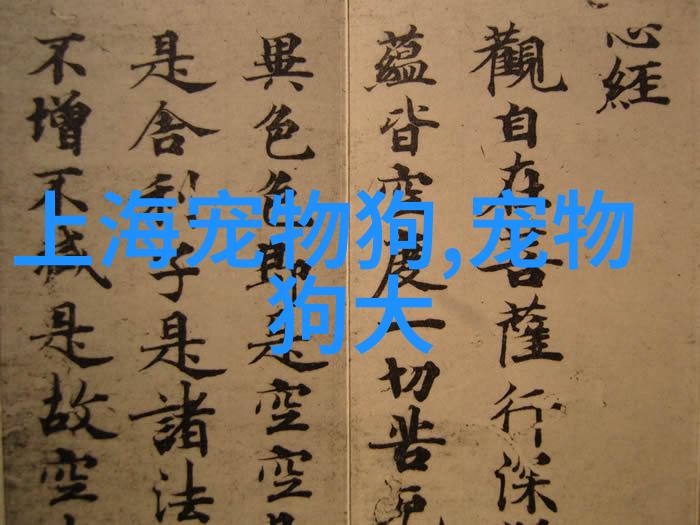 上海宠物狗,宠物
狗大
心經
觀自在菩薩行深
蘊皆空度一切苦厄
異色色即是空空
是舍利子是諸法
不增不減是故空